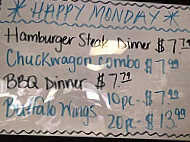 *HAPPY MONDAY*
Hamburger Steak Dinner $7.79
Chuckwagon Combo $7.99
BBQ Dinner $7.79
Buffalo Wings 10pc - $7.99
20pc - $13.99